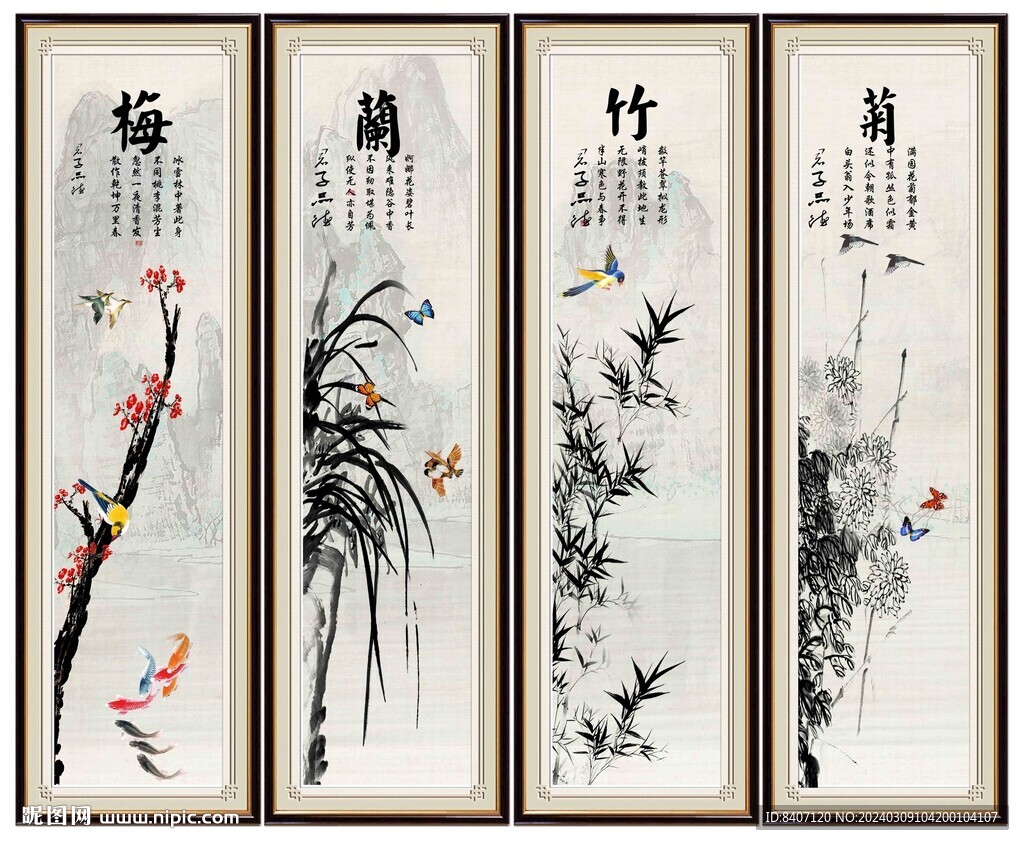 梅
冰雪林中著此身
不同桃李混芳尘
忽然一夜清香发
散作乾坤万里春
君子品德
蘭
婀娜花姿碧叶长
风来难隐谷中香
不因纫取堪为佩
纵使无人亦自芳
君子品德
竹
数竿苍翠拟龙形
峭拔须教此地生
无限野花开不得
半山寒色与春争
君子品德
菊
满园花菊郁金黄
中有孤丛色似霜
还似今朝歌酒席
白头翁入少年场
君子品德
昵图网 www.nipic.com
ID:8407120 NO:20240309104200104107